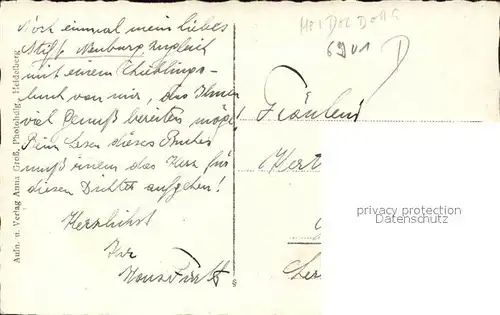 Noch einmal mein liebes
Stift Neuburg, zugleich
mit einem Lieblings-
buch von mir, das Ihnen
viel Genuß bereiten möge!
Beim Lesen dieses Buches
muß einem das Herz für
diesen Dichter aufgehen!
Herzlichst
Ihr
HEIDELBERG
6901
Fräulein
privacy protection
www.oldthing.de
Aufn. u. Verlag Anna Groß, Photohdlg., Heidelberg